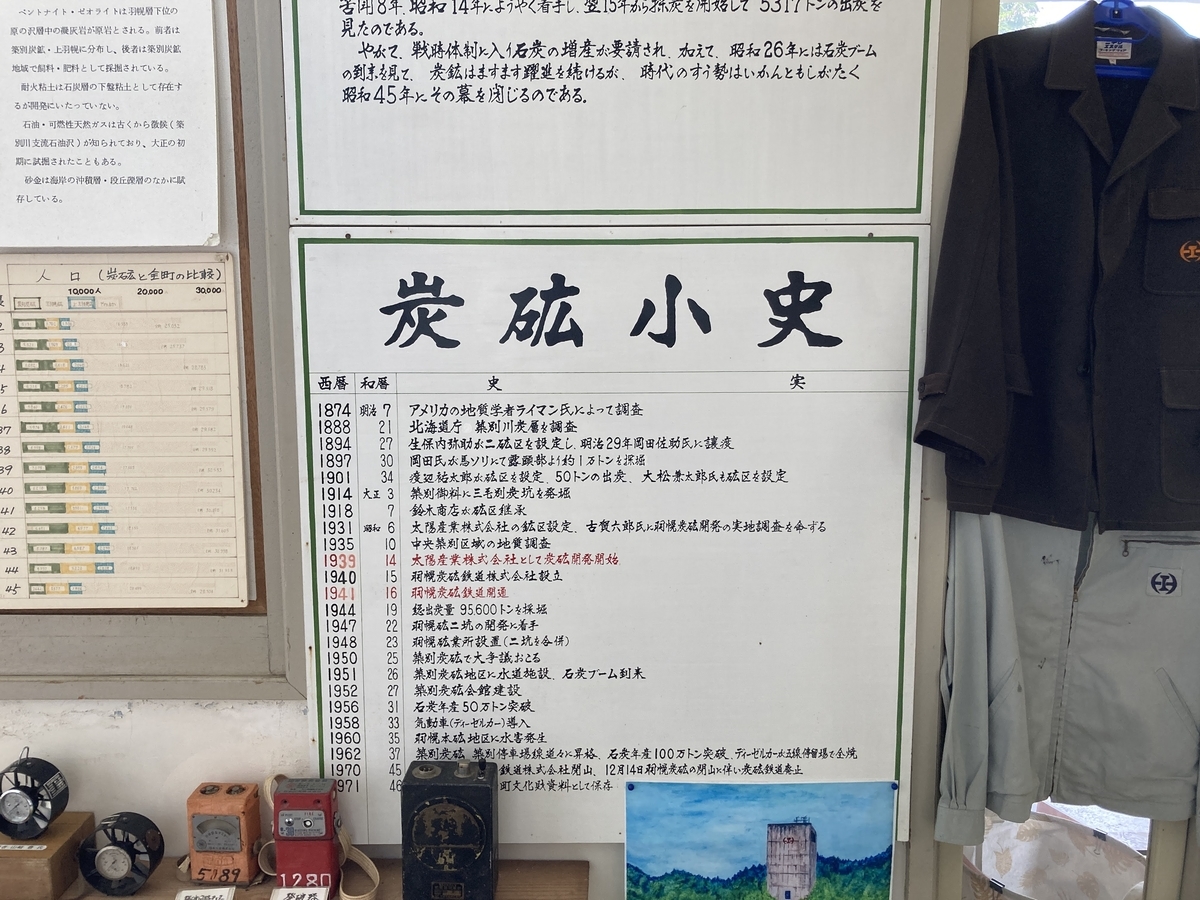 ベントナイト・ゼオライトは羽幌層下位の
原の沢層中の凝灰岩が原岩とされる。前者は
築別炭鉱・上羽幌に分布し、後者は築別炭鉱
地域で飼料・肥料として採掘されている。
耐火粘土は石炭層の下盤粘土として存在す
るが開発にいたっていない。
石油・可燃性天然ガスは古くから徴候(築
別川支流石油沢)が知られており、大正の初
期に試掘されたこともある。
砂金は海岸の沖積層・段丘礫層のなかに賦
存している。
人口(炭砿と全町の比較)
10,000人 20,000 30,000
38
39
40
41
42
43
44
45
苦闘8年、昭和14年にようやく着手し、翌15年から採炭を開始して5317トンの出炭を
見たのである。
やがて、戦時体制に入り石炭の増産が要請され、加えて、昭和26年には石炭ブーム
の到来を見て、炭鉱はますます躍進を続けるが、時代のすう勢はいかんともしがたく
昭和45年にその幕を閉じるのである。
炭砿小史
西暦 和暦 史実
1874 明治 7 アメリカの地質学者ライマン氏によって調査
1888 21 北海道庁 築別川炭層を調査
1894 27 生保内弥助が二砿区を設定し、明治29年岡田佐助氏に譲渡
1897 30 岡田氏が馬ソリにて露頭部より約1万トンを採掘
1901 34 渡辺祐太郎が砿区を設定、50トンの出炭、大松兼太郎氏も砿区を設定
1914 大正 3 築別御料に三毛別炭坑を発掘
1918 7 鈴木商店が砿区継承
1931 昭和 6 太陽産業株式会社の鉱区設定、古賀六郎氏に羽幌炭砿開発の実地調査を命ずる
1935 10 中央築別区域の地質調査
1939 14 太陽産業株式会社として炭砿開発開始
1940 15 羽幌炭砿鉄道株式会社設立
1941 16 羽幌炭砿鉄道開通
1944 19 総出炭量 95.600トンを採掘
1947 22 羽幌砿二坑の開発に着手
1948 23 羽幌砿業所設置(二坑を合併)
1950 25 築別炭砿で大争議おこる
1951 26 築別炭砿地区に水道施設、石炭ブーム到来
1952 27 築別炭砿会館建設
1956 31 石炭年産50万トン突破
1958 33 気動車(ディーゼルカー)導入
1960 35 羽幌本砿地区に水害発生
1962 37 築別炭砿、築別停車場線道々に昇格、石炭年産100万トン突破、ディーゼルカーが五線停留場で全焼
1970 45 鉄道株式会社閉山、12月14日羽幌炭砿の閉山に伴い炭砿鉄道廃止
1971 46 町文化財資料として保存
5089
1280
発破器